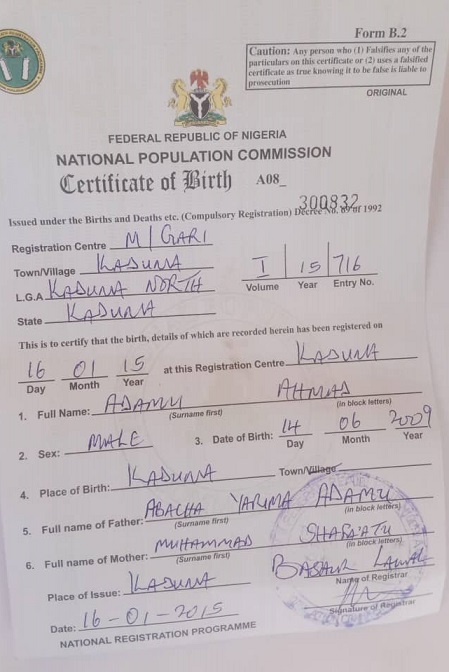 Form B.2
Caution: Any person who (1) Falsifies any of the
particulars on this certificate or (2) uses a falsified
certificate as true knowing it to be false is liable to
prosecution
ORIGINAL
FEDERAL REPUBLIC OF NIGERIA
NATIONAL POPULATION COMMISSION
Certificate of Birth A08_
300832
Issued under the Births and Deaths etc. (Compulsory Registration) Decree No. 69 of 1992
Registration Centre M/GARI
Town/Village KADUNA
L.G.A KADUNA NORTH
I 15 716
Volume Year Entry No.
State KADUNA
This is to certify that the birth, details of which are recorded herein has been registered on
16 01 15 at this Registration Centre KADUNA
Day Month Year
1. Full Name: ADAMU AHMAD
(Surname first) (in block letters)
2. Sex: MALE 3. Date of Birth: 14 06 2009
Day Month Year
4. Place of Birth: KADUNA Town/Village
5. Full name of Father: ABACHA YARIMA ADAMU
(Surname first) (in block letters)
6. Full name of Mother: MUHAMMAD SHAFA'ATU
(Surname first) (in block letters)
Place of Issue: KADUNA BASHIR LAWAL
Name of Registrar
Date: 16-01-2015
Signature of Registrar
NATIONAL REGISTRATION PROGRAMME